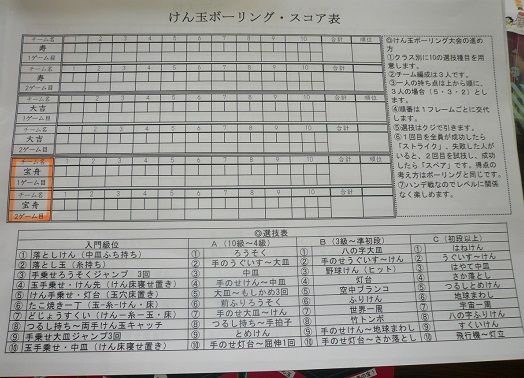 けん玉ボーリング・スコア表
チーム名 1 2 3 4 5 6 7 8 9 10 合計 順位
寿
1ゲーム目
チーム名 1 2 3 4 5 6 7 8 9 10 合計
寿
2ゲーム目
チーム名 1 2 3 4 5 6 7 8 9 10 合計 順位
大吉
1ゲーム目
チーム名 1 2 3 4 5 6 7 8 9 10 合計
大吉
2ゲーム目
チーム名 1 2 3 4 5 6 7 8 9 10 合計 順位
宝舟
1ゲーム目
チーム名 1 2 3 4 5 6 7 8 9 10 合計
宝舟
2ゲーム目
◎けん玉ボーリング大会の進め
方
①クラス別に10の選技種目を用
意します。
②チーム編成は3人です。
③一人の持ち点は上から順に、
3人の場合(5・3・2)とし
ます。
④順番は1フレームごとに交代
します。
⑤選技はクジで引きます。
⑥1回目を全員が成功したら
「ストライク」、失敗した人が
いると、2回目を試技し、成功
したら「スペア」です。得点の
考え方はボーリングと同じです。
⑦ハンデ戦なのでレベルに関係
なく楽しめます。
◎選技表
入門級位 A(10級~4級) B(3級~準初段) C(初段以上)
① 落としけん(中皿ふち持ち) ① ろうそく ① 八の字大皿 ① はねけん
② 落とし玉(糸持ち) ② 手のうぐいす~大皿 ② 手のせうぐいす~けん ② うぐいす~けん
③ 手乗せろうそくジャンプ 3回 ③ 中皿 ③ 野球けん(ヒット) ③ はやて中皿
④ 玉手乗せ・けん先(けん床寝せ置き) ④ 手のせけん~中皿 ④ 灯台 ④ さか落とし
⑤ けん手乗せ・灯台(玉穴床置き) ⑤ 大皿~もしかめ3回 ⑤ 空中ブランコ ⑤ つるしとめけん
⑥ たこ焼き一丁(玉-糸-けん・床) ⑥ 前ふりろうそく ⑥ ふりけん ⑥ 地球まわし
⑦ どじょうすくい(けん-糸-玉・床) ⑦ 手のせ大皿~けん ⑦ 世界一周 ⑦ 宇宙一周
⑧ つるし持ち~両手けん玉キャッチ ⑧ つるし持ち~手拍子 ⑧ 竹トンボ ⑧ 八の字ふりけん
⑨ 手乗せ大皿ジャンプ3回 ⑨ とめけん ⑨ 手のせけん~地球まわし ⑨ すくいけん
⑩ 玉手乗せ・中皿(けん床寝せ置き) ⑩ 手のせ灯台~屈伸1回 ⑩ 手のせ灯台~さか落とし ⑩ 飛行機~灯立